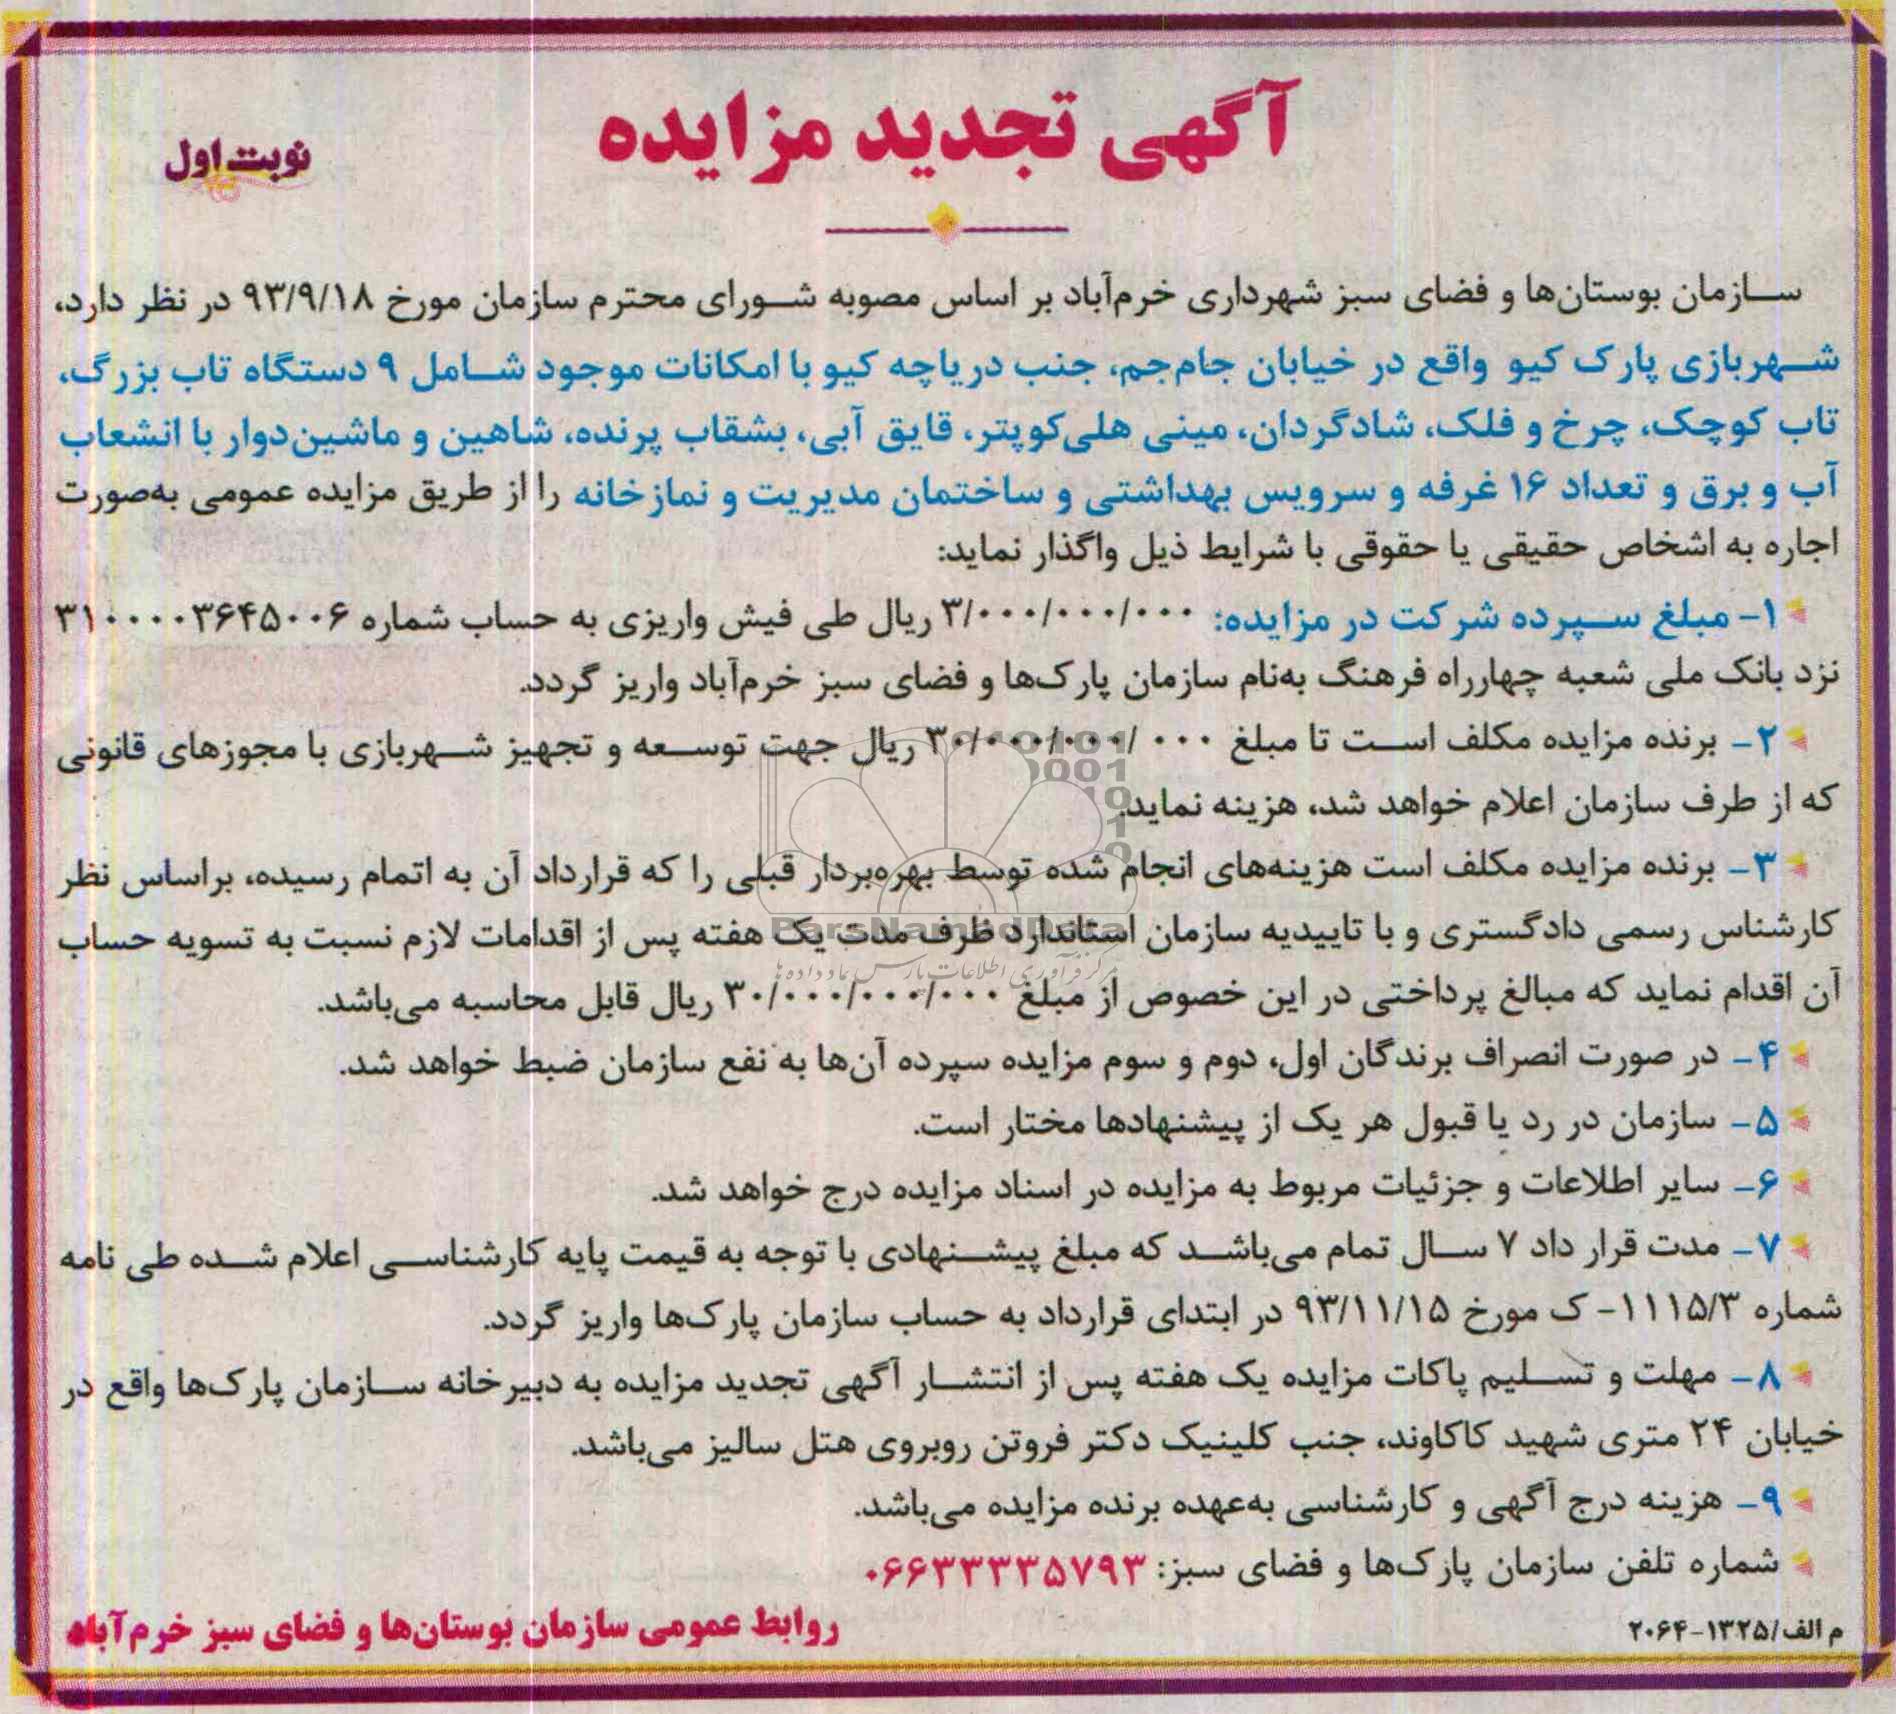 آگهی تجدید مزایده
نوبت اول
سازمان بوستان‌ها و فضای سبز شهرداری خرم‌آباد بر اساس مصوبه شورای محترم سازمان مورخ ۹۳/۹/۱۸ در نظر دارد،
شهربازی پارک کیو واقع در خیابان جام‌جم، جنب دریاچه کیو با امکانات موجود شامل ۹ دستگاه تاب بزرگ،
تاب کوچک، چرخ و فلک، شادگردان، مینی هلی‌کوپتر، قایق آبی، بشقاب پرنده، شاهین و ماشین‌دوار با انشعاب
آب و برق و تعداد ۱۶ غرفه و سرویس بهداشتی و ساختمان مدیریت و نمازخانه را از طریق مزایده عمومی به‌صورت
اجاره به اشخاص حقیقی یا حقوقی با شرایط ذیل واگذار نماید:
۱- مبلغ سپرده شرکت در مزایده: ۳/۰۰۰/۰۰۰/۰۰۰ ریال طی فیش واریزی به حساب شماره ۳۱۰۰۰۰۳۶۴۵۰۰۶
نزد بانک ملی شعبه چهارراه فرهنگ به‌نام سازمان پارک‌ها و فضای سبز خرم‌آباد واریز گردد.
۲- برنده مزایده مکلف است تا مبلغ ۳۰/۰۰۰/۰۰۰/۰۰۰ ریال جهت توسعه و تجهیز شهربازی با مجوزهای قانونی
که از طرف سازمان اعلام خواهد شد، هزینه نماید.
۳- برنده مزایده مکلف است هزینه‌های انجام شده توسط بهره‌بردار قبلی را که قرارداد آن به اتمام رسیده، براساس نظر
کارشناس رسمی دادگستری و با تاییدیه سازمان استاندارد ظرف مدت یک هفته پس از اقدامات لازم نسبت به تسویه حساب
آن اقدام نماید که مبالغ پرداختی در این خصوص از مبلغ ۳۰/۰۰۰/۰۰۰/۰۰۰ ریال قابل محاسبه می‌باشد.
۴- در صورت انصراف برندگان اول، دوم و سوم مزایده سپرده آن‌ها به نفع سازمان ضبط خواهد شد.
۵- سازمان در رد یا قبول هر یک از پیشنهادها مختار است.
۶- سایر اطلاعات و جزئیات مربوط به مزایده در اسناد مزایده درج خواهد شد.
۷- مدت قرار داد ۷ سال تمام می‌باشد که مبلغ پیشنهادی با توجه به قیمت پایه کارشناسی اعلام شده طی نامه
شماره ۱۱۱۵/۳- ک مورخ ۹۳/۱۱/۱۵ در ابتدای قرارداد به حساب سازمان پارک‌ها واریز گردد.
۸- مهلت و تسلیم پاکات مزایده یک هفته پس از انتشار آگهی تجدید مزایده به دبیرخانه سازمان پارک‌ها واقع در
خیابان ۲۴ متری شهید کاکاوند، جنب کلینیک دکتر فروتن روبروی هتل سالیز می‌باشد.
۹- هزینه درج آگهی و کارشناسی به‌عهده برنده مزایده می‌باشد.
شماره تلفن سازمان پارک‌ها و فضای سبز: ۰۶۶۳۳۳۳۵۷۹۳
روابط عمومی سازمان بوستان‌ها و فضای سبز خرم‌آباد
م الف/۱۳۲۵-۲۰۶۴
ParsNamadData
مرکز فرآوری اطلاعات پارس نماد داده‌ها